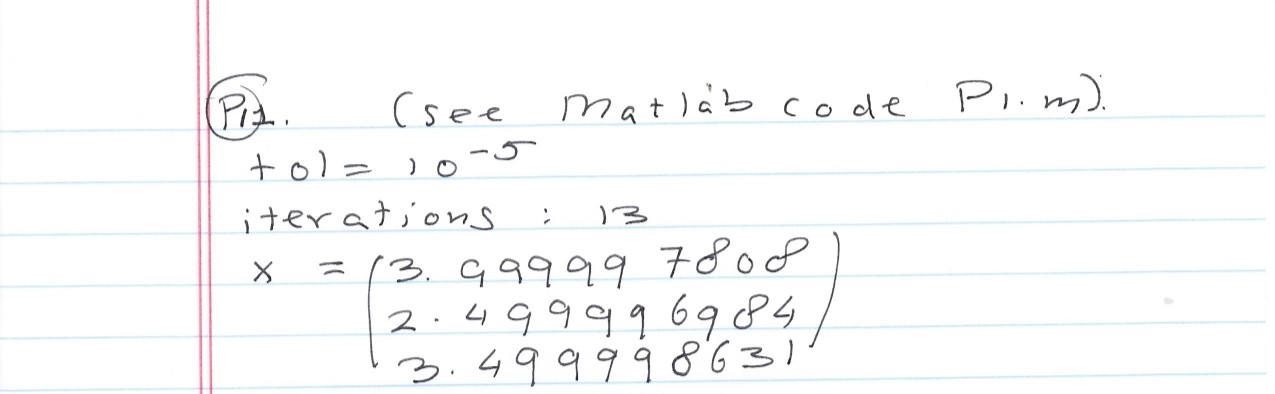 P1. (see Matlab code P1.m).
tol = 10^-5
iterations : 13
x = (3.999997808
2.499996984
3.499998631)